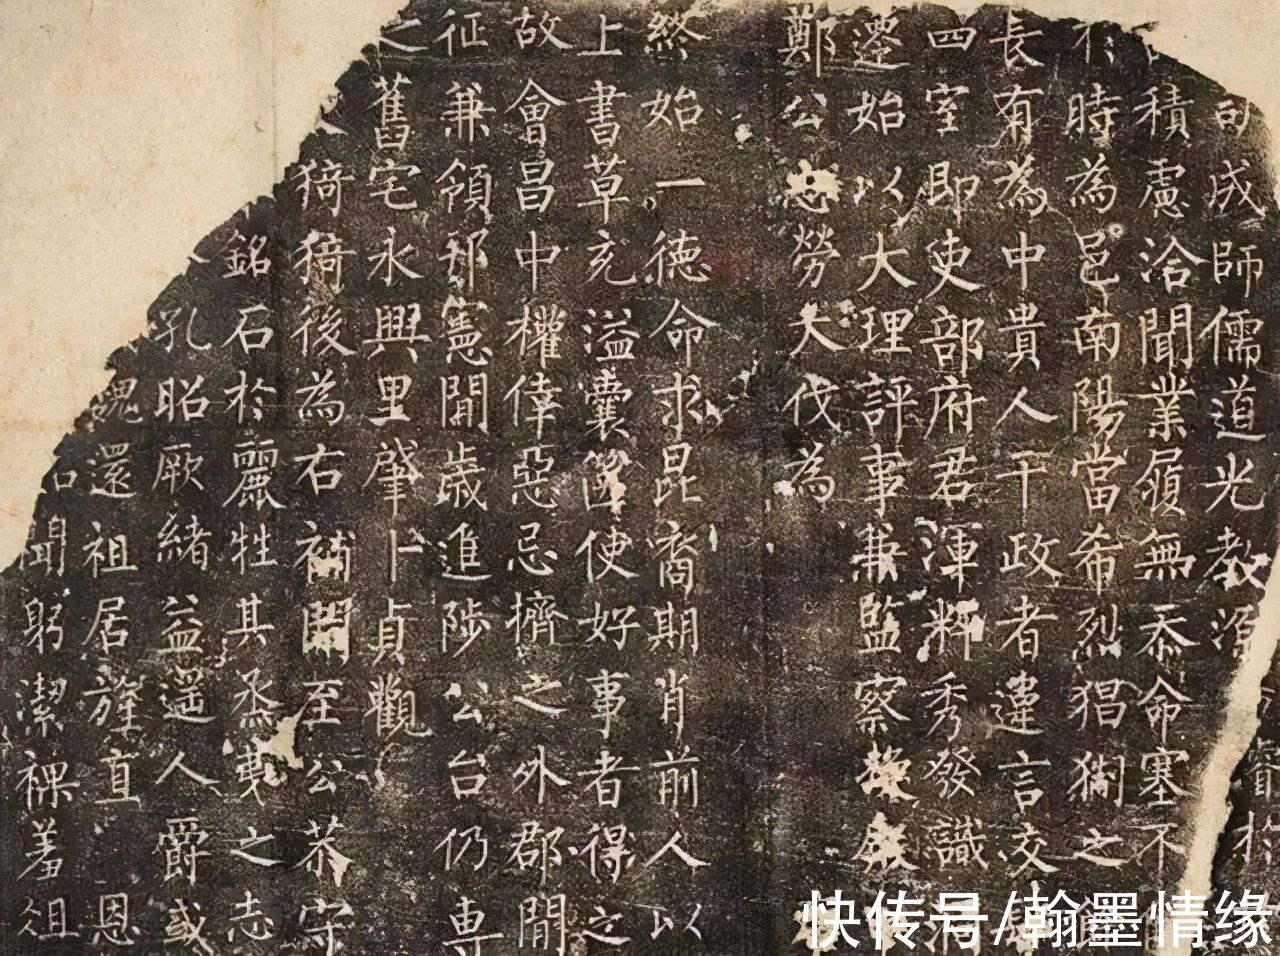 於
司成師儒道光教源
積慮洽聞業履無忝命塞不
時為邑南陽當希烈猖獗之
長有為中貴人干政者違言交
四室即吏部府君渾粹秀發識
遷始以大理評事兼監察
鄭公忠勞大伐為
終始一德命求昆裔期肖前人以
上書草充溢囊篋使好事者得之
故會昌中權倖惡忌擠之外郡閒
征兼領邢憲閒歲進陟公台仍專
之舊宅永興里肇卜貞觀
猗猗後為右補闕至公恭守
銘石於麗牲其烝彝之志
孔昭厥緒益遥人爵或
還祖居旌直恩
聞躬潔裸羞俎
快传号/翰墨情缘